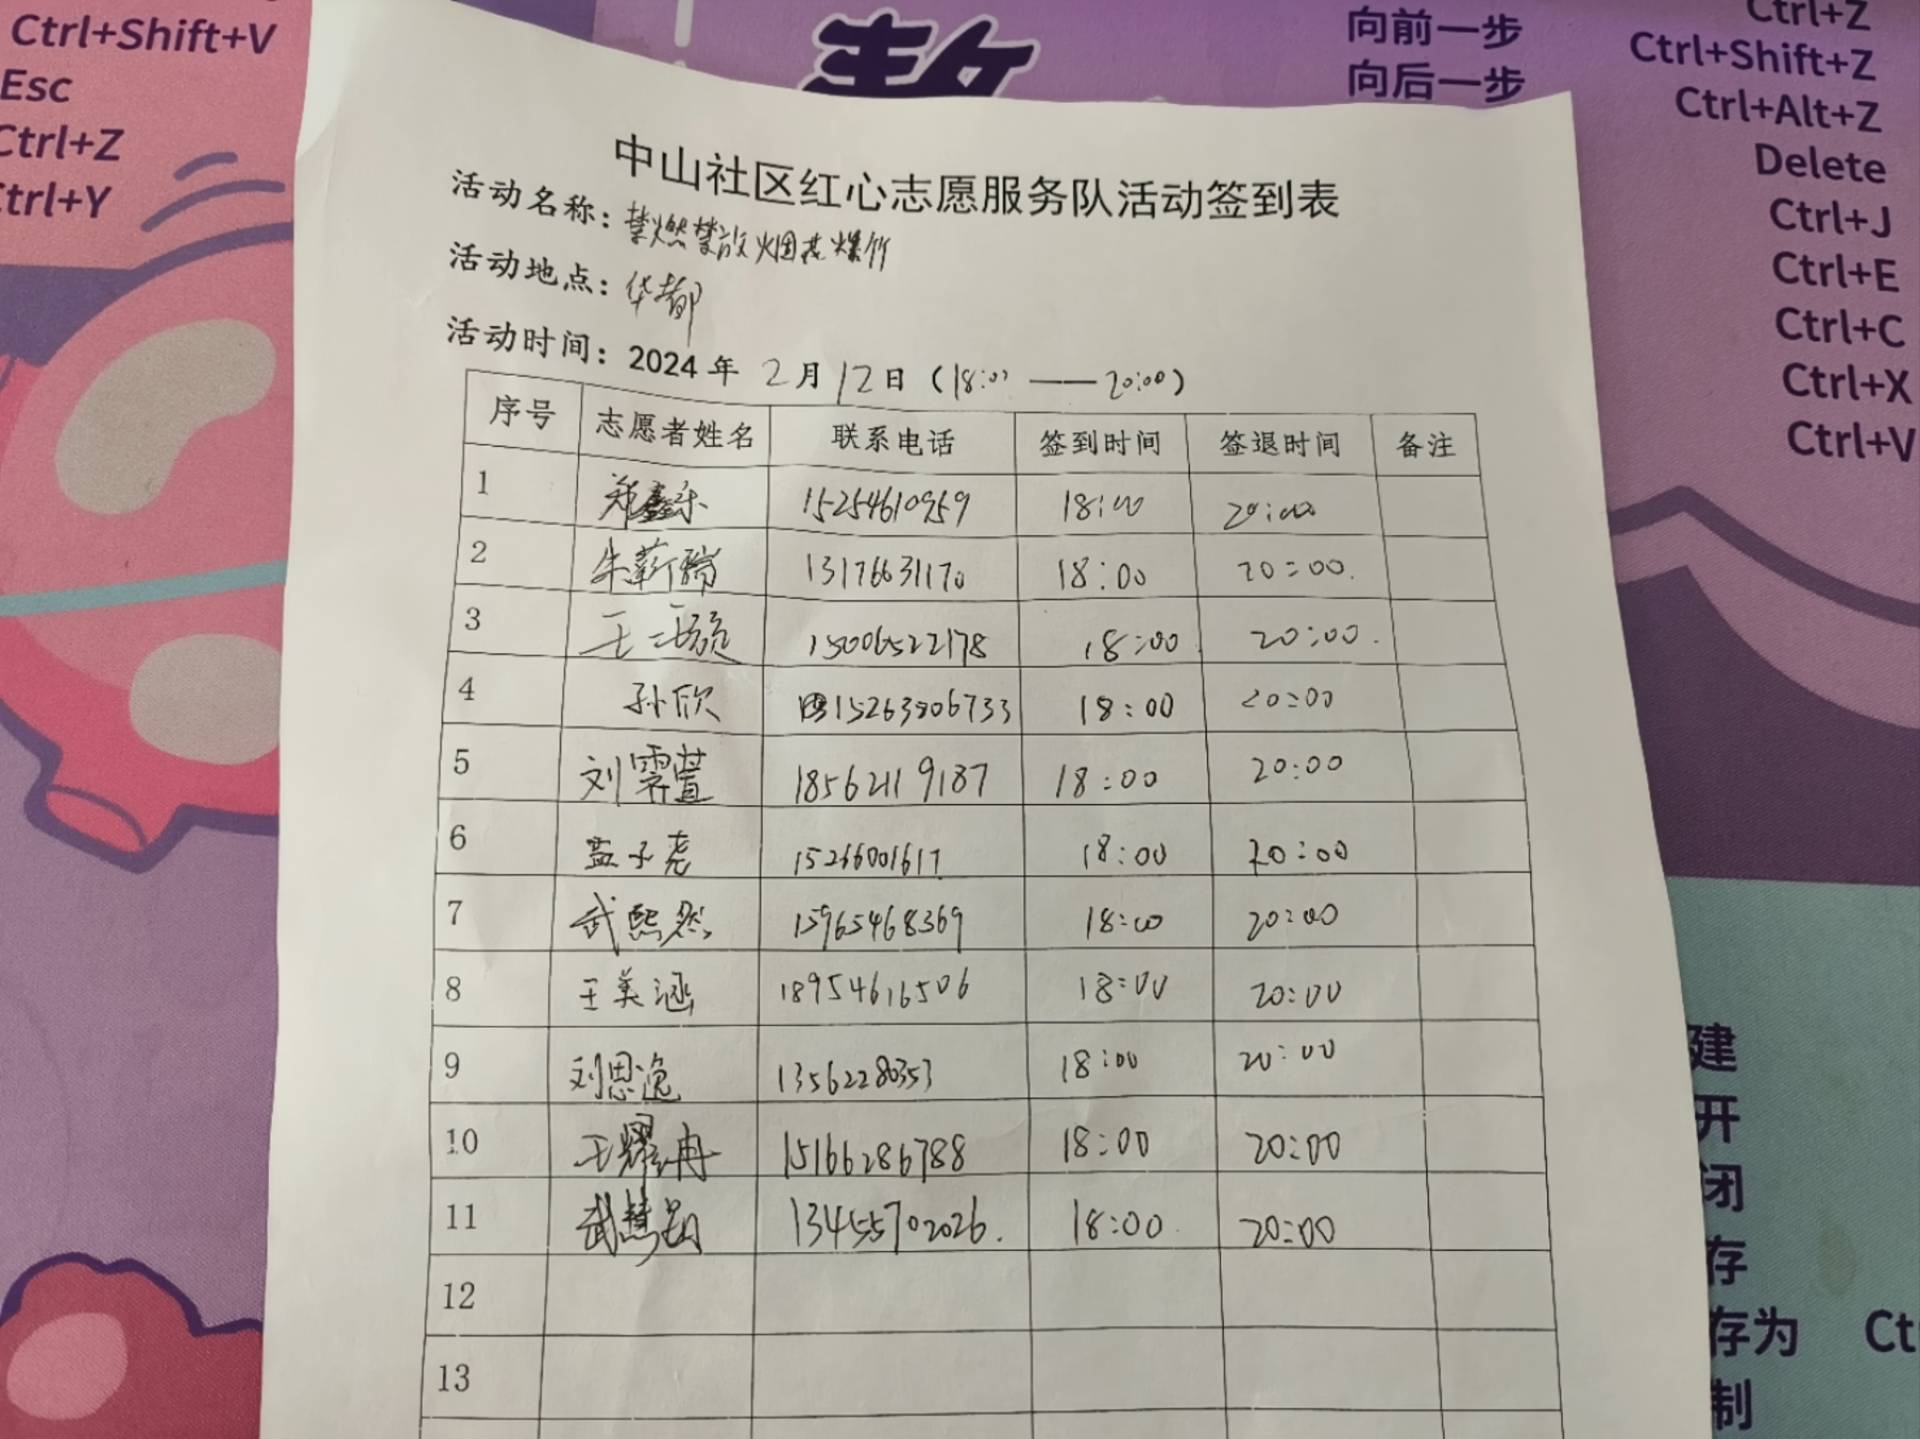 Ctrl+Shift+V
Esc
Ctrl+Z
Ctrl+Y
向前一步
向后一步
Ctrl+Z
Ctrl+Shift+Z
Ctrl+Alt+Z
Delete
Ctrl+J
Ctrl+E
Ctrl+C
Ctrl+X
Ctrl+V
中山社区红心志愿服务队活动签到表
活动名称：禁燃禁放烟花爆竹
活动地点：华都
活动时间：2024年 2月12日（18:00——20:00）
序号 志愿者姓名 联系电话 签到时间 签退时间 备注
1 郑鑫乐 15254610959 18:00 20:00
2 朱薪瑞 13176631170 18:00 20:00.
3 王 15006522178 18:00 20:00.
4 孙欣 15263806733 18:00 20:00
5 刘霁萱 18562119187 18:00 20:00
6 孟子尧 15266001617 18:00 20:00
7 武熙然 15965468369 18:00 20:00
8 王美涵 18954616506 18:00 20:00
9 刘思逸 13562280353 18:00 20:00
10 王耀冉 15166286788 18:00 20:00
11 武慧 13455702026. 18:00 20:00
12
13
建
开
闭
存
存为 Ct
制